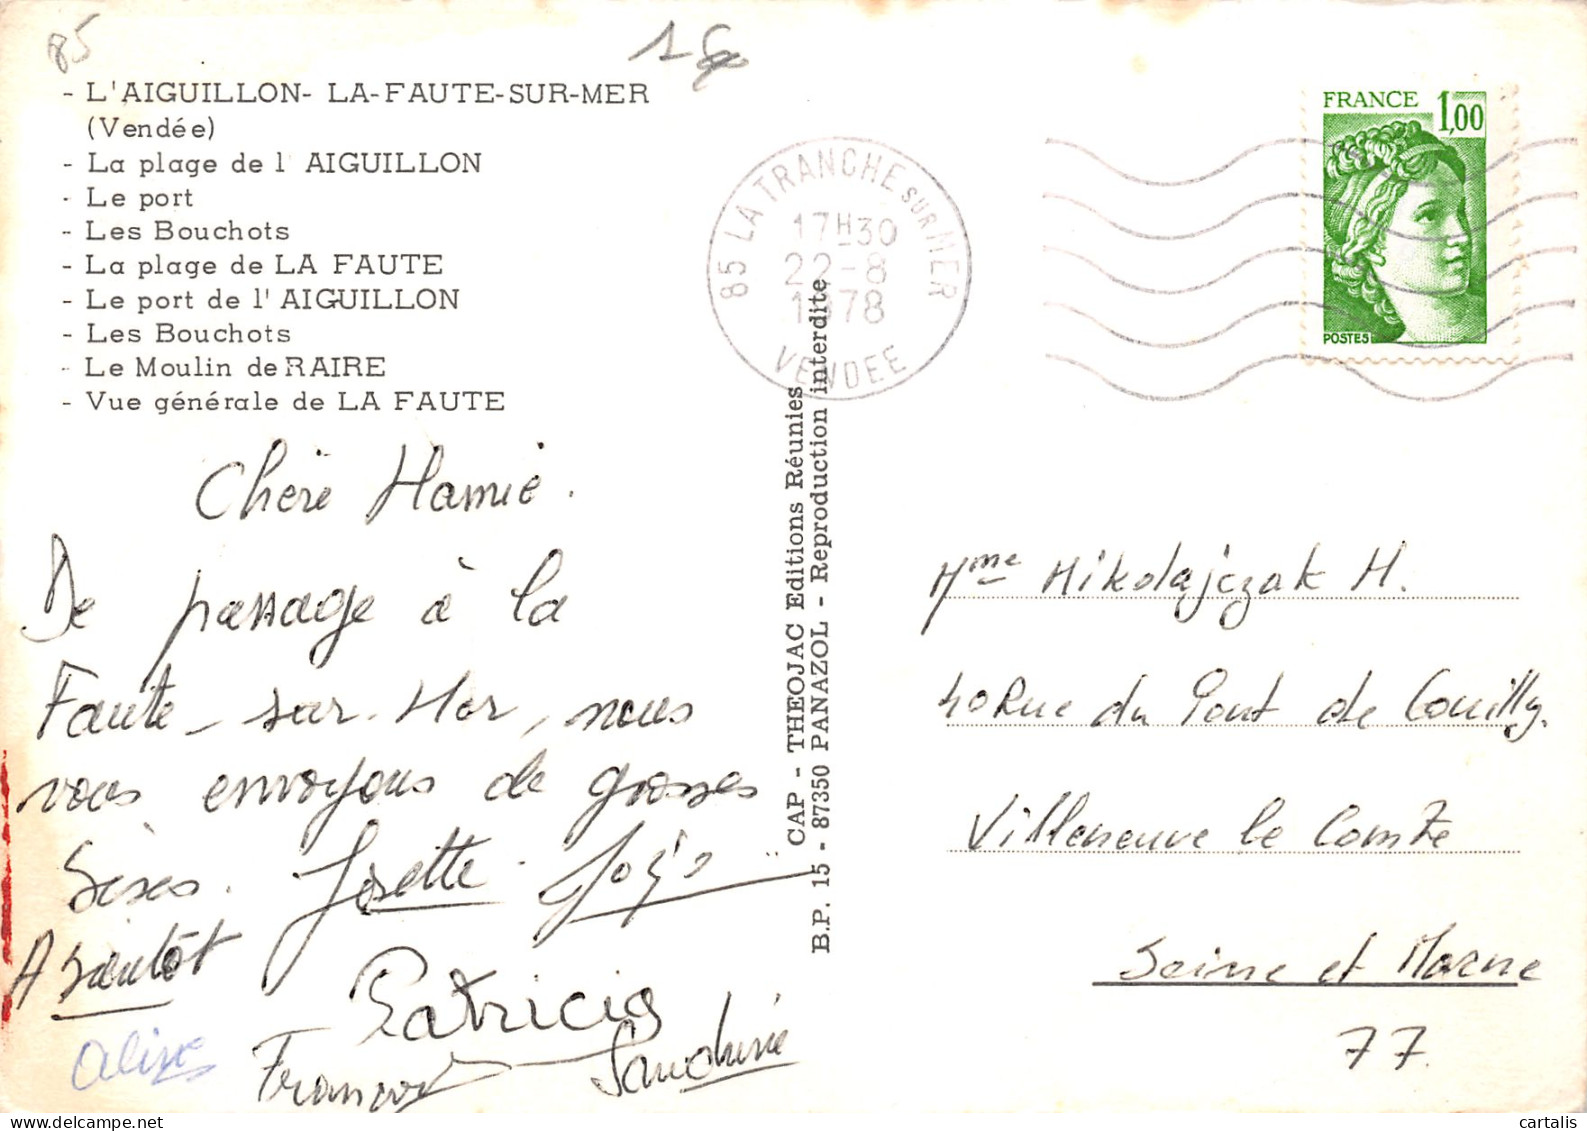 85
- L'AIGUILLON- LA-FAUTE-SUR-MER
(Vendée)
- La plage de l' AIGUILLON
- Le port
- Les Bouchots
- La plage de LA FAUTE
- Le port de l' AIGUILLON
- Les Bouchots
- Le Moulin de RAIRE
- Vue générale de LA FAUTE
Chère Mamie.
De passage à la
Faute-sur-Mer, nous
vous envoyons de grosses
bises. Josette
A bientôt
Patricia
Aline Franck Sandrine
CAP - THEOJAC Editions Réunies
B.P. 15 - 87350 PANAZOL - Reproduction interdite
85 LA TRANCHE SUR MER
17H30
22-8
1978
VENDEE
FRANCE 1,00
POSTES
Mme Mikolajczak H.
40 Rue du Pont de Couilly.
Villeneuve le Comte
Seine et Marne
77.
cartalis